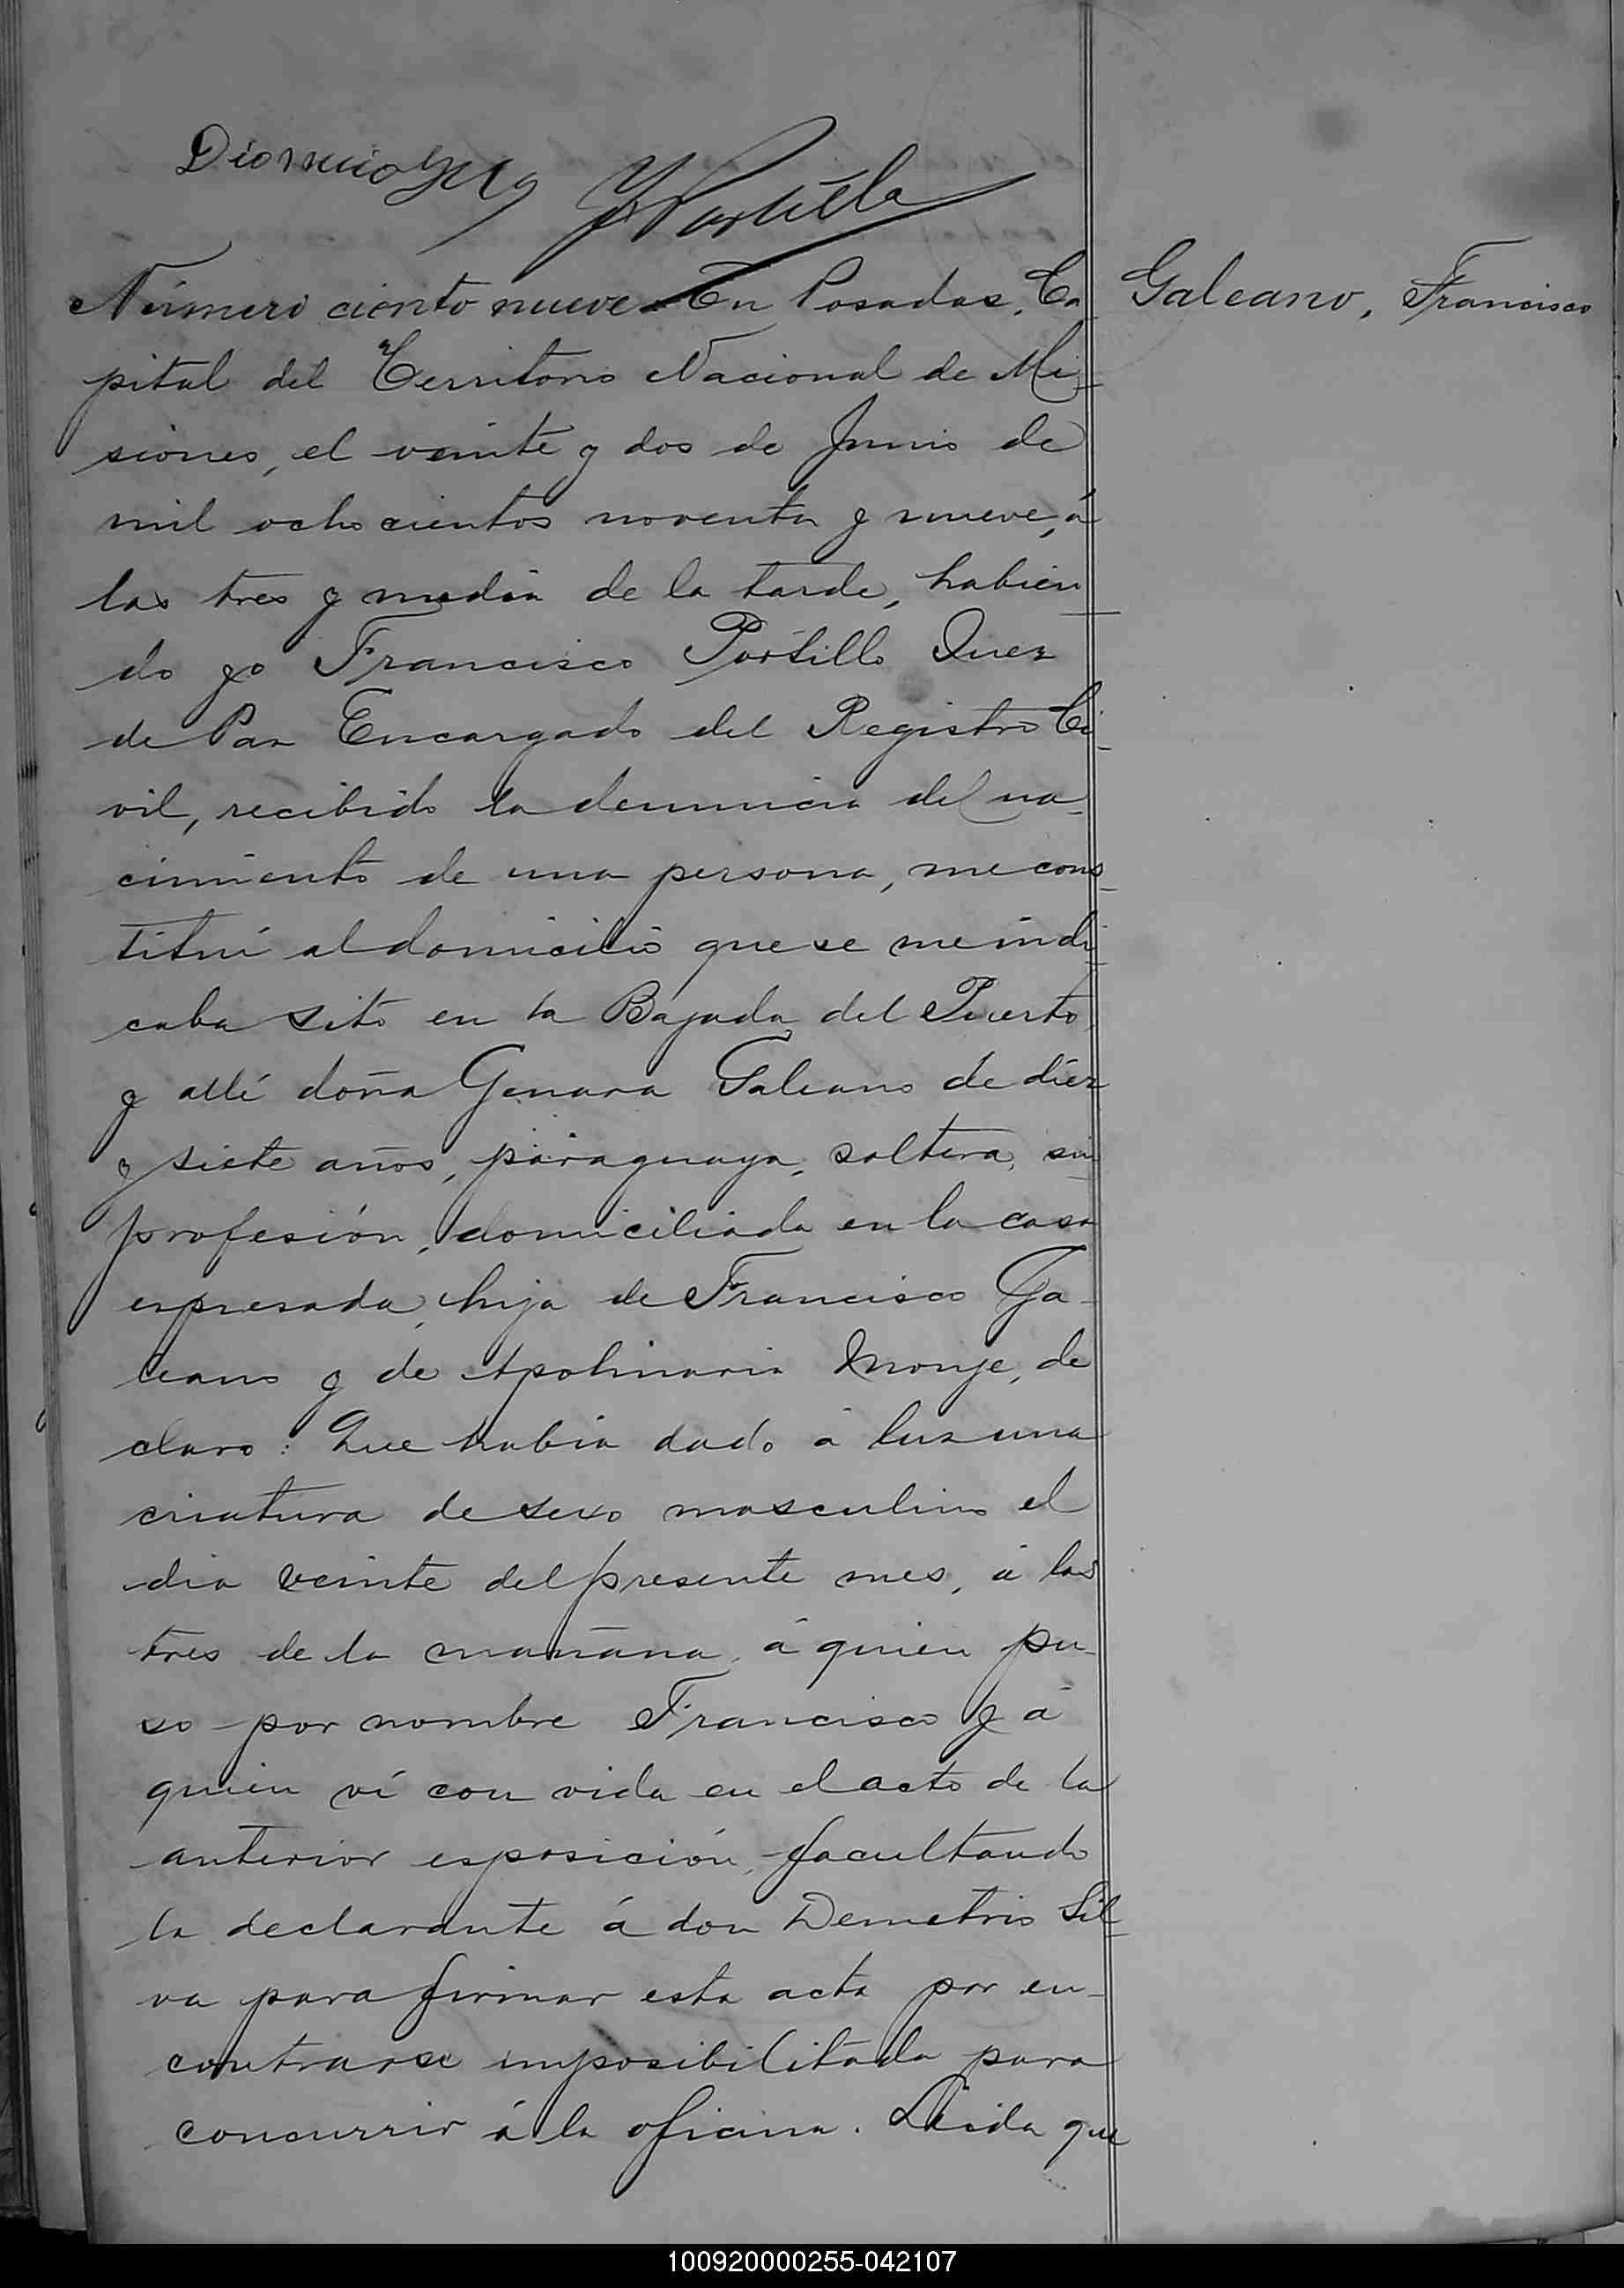 Portillo
Número ciento nueve En Posadas, Ca
Galeano, Francisco
pital del Territorio Nacional de Mi-
siones, el veinte y dos de Junio de
mil ochocientos noventa y nueve, á
las tres y media de la tarde, habien
do yo Francisco Portillo Juez
de Paz Encargado del Registro Ci-
vil, recibido la denuncia del na-
cimiento de una persona, me cons-
tituí al domicilio que se me indi
caba sito en la Bajada del Puerto,
y allí doña Genara Galeano de diez
y siete años, paraguaya, soltera, sin
profesión, domiciliada en la casa
espresada, hija de Francisco Ga-
leano y de Apolinaria Monje, de
claro: Que habia dado á luz una
criatura de sexo masculino el
dia veinte del presente mes, á las
tres de la mañana, á quien pu-
so por nombre Francisco y á
quien ví con vida en el acto de la
anterior esposición, facultando
la declarante á don Demetrio Sil-
va para firmar esta acta por en-
contrarse imposibilitada para
concurrir á la oficina. Leida que
100920000255-042107